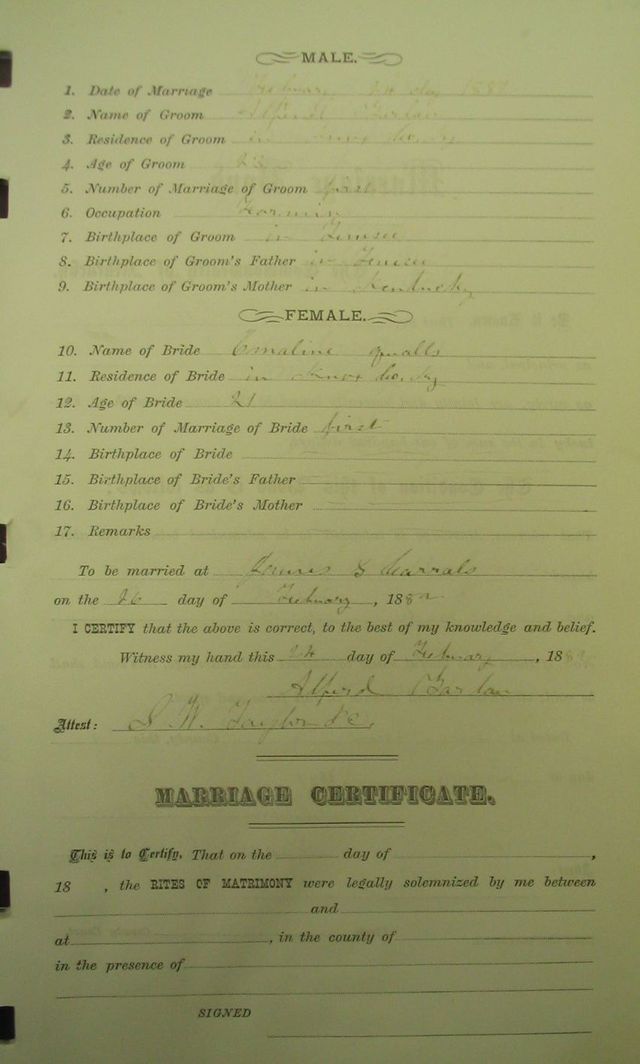 MALE.
1. Date of Marriage
2. Name of Groom
3. Residence of Groom in Knox Co. Ky
4. Age of Groom
5. Number of Marriage of Groom first
6. Occupation Farmin
7. Birthplace of Groom in
8. Birthplace of Groom's Father in
9. Birthplace of Groom's Mother in Kentucky
FEMALE.
10. Name of Bride Emaline qualls
11. Residence of Bride in Knox Co. Ky
12. Age of Bride 21
13. Number of Marriage of Bride first
14. Birthplace of Bride
15. Birthplace of Bride's Father
16. Birthplace of Bride's Mother
17. Remarks
To be married at
on the 26 day of February, 188
I CERTIFY that the above is correct, to the best of my knowledge and belief.
Witness my hand this 24 day of February, 188
Alferd
Attest: J. W.
MARRIAGE CERTIFICATE.
This is to Certify, That on the day of ,
18 , the RITES OF MATRIMONY were legally solemnized by me between
and
at , in the county of
in the presence of
SIGNED